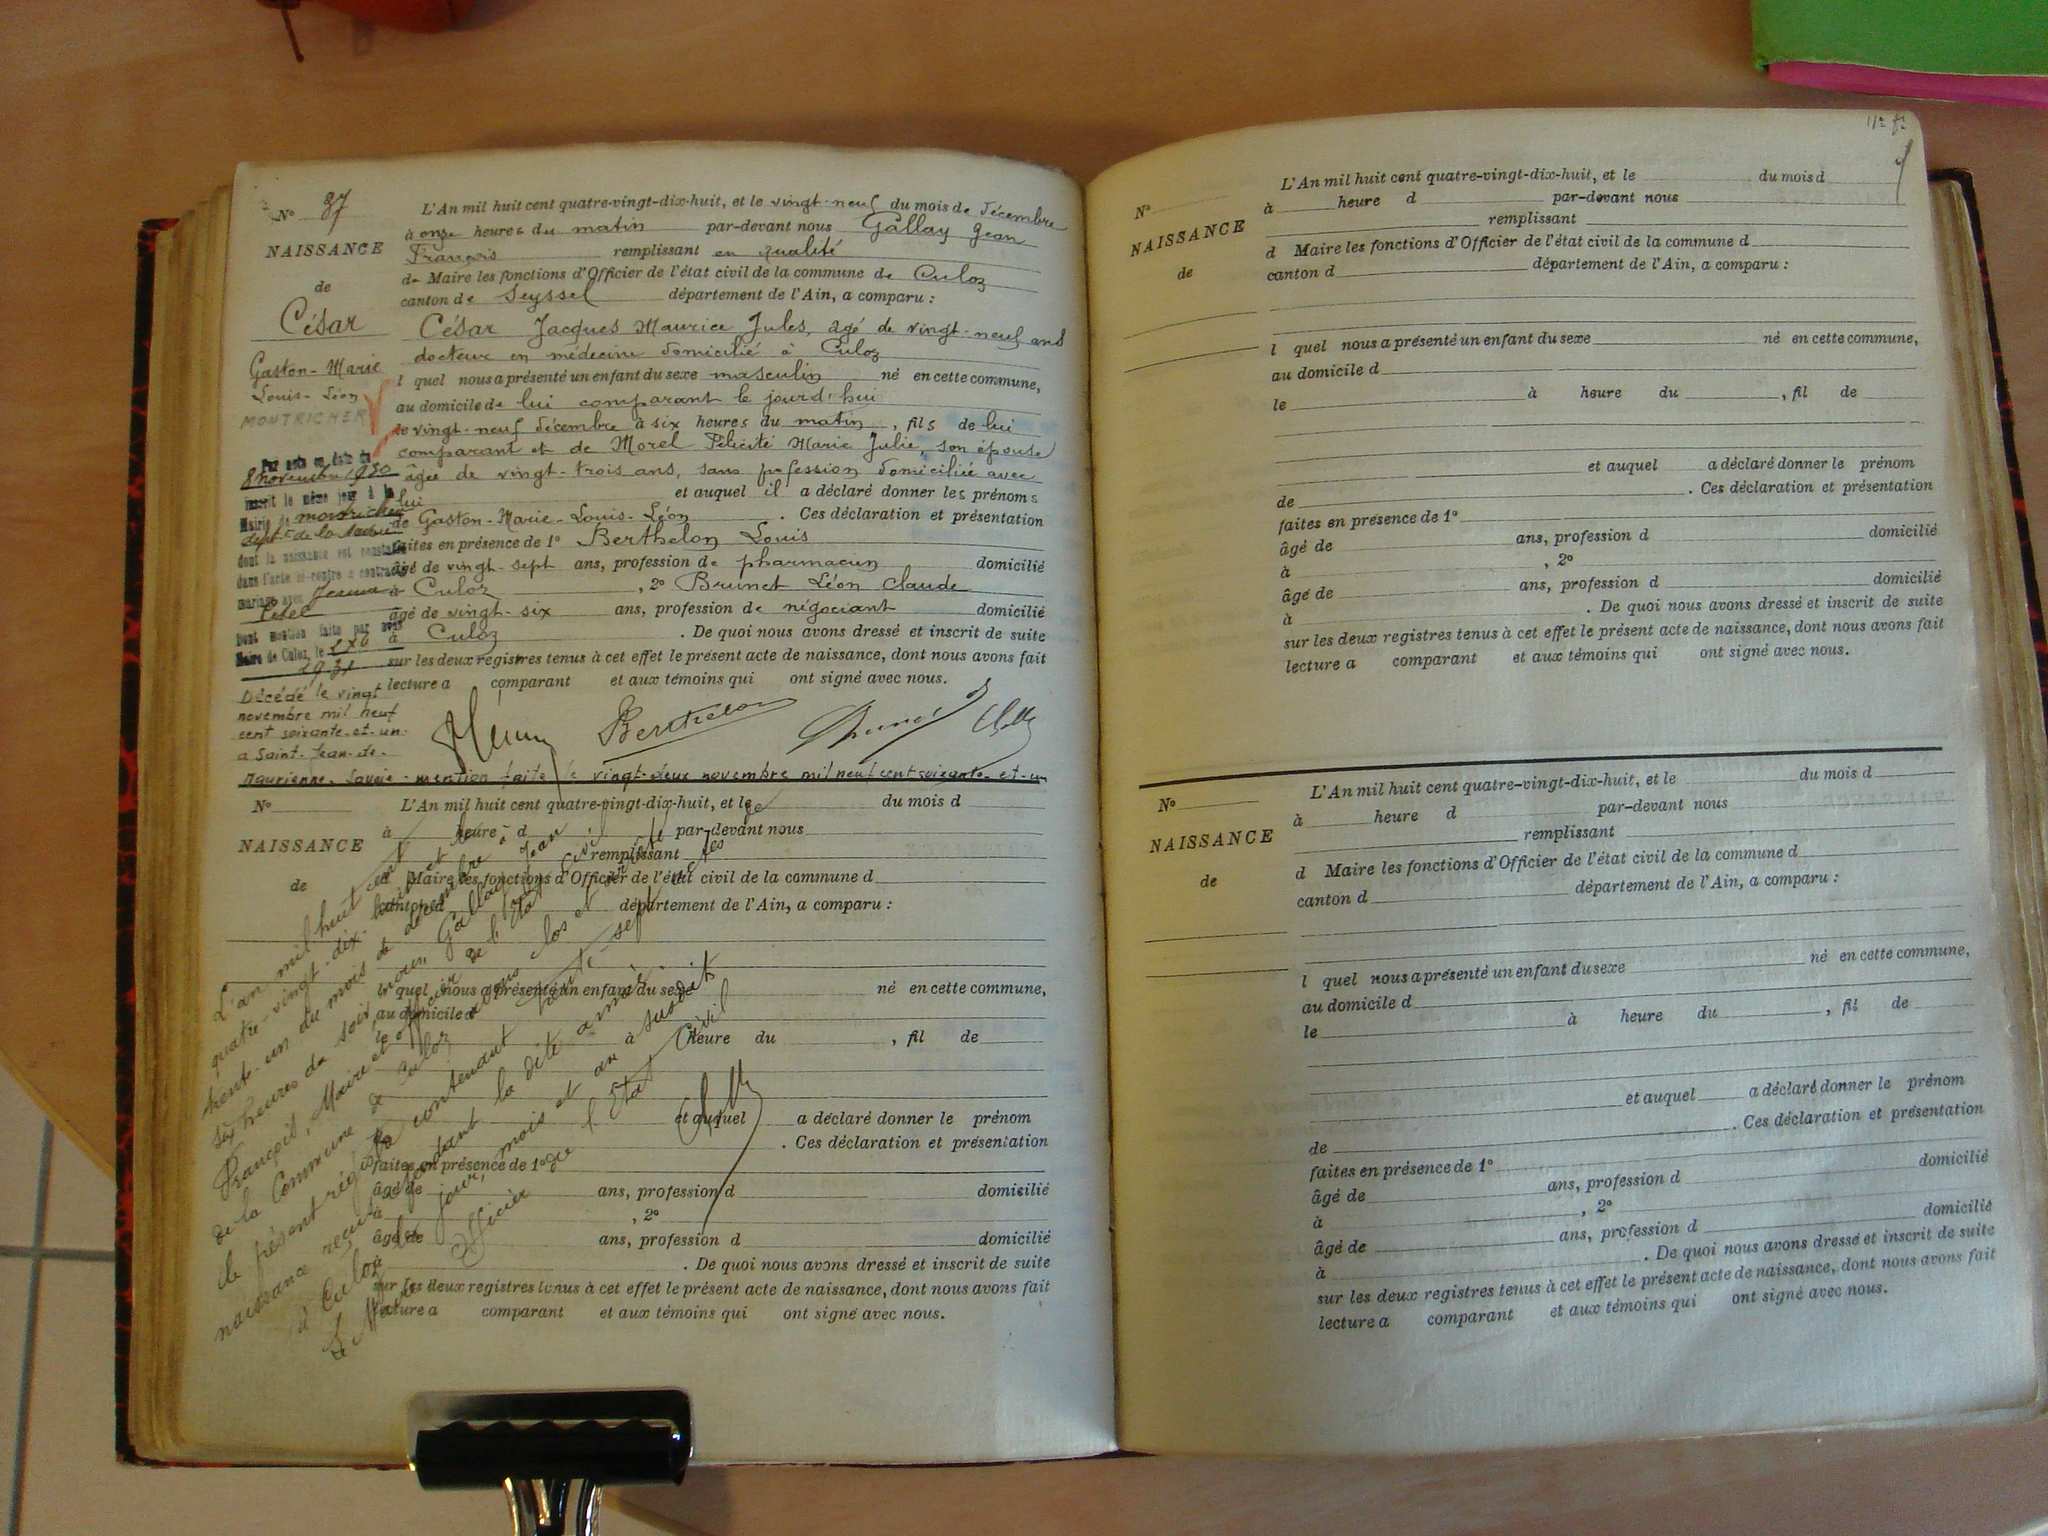 N° 37
NAISSANCE
de
César
Gaston-Marie
Louis-Léon
MONTRICHER
Par acte en date du
8 novembre 1930
inscrit le même jour à la
Mairie de Montricher
dépt de la Savoie
dont la naissance est constatée
dans l'acte ci-contre a contracté
mariage avec Jeanne
Dont mention faite par avis
Maire de Culoz, le
1931
Décédé le vingt
novembre mil neuf
cent soixante-et-un
a Saint-Jean-de-
Maurienne. Savoie - mention faite le vingt-deux novembre mil neuf cent soixante-et-un
L'An mil huit cent quatre-vingt-dix-huit, et le vingt-neuf du mois de décembre
à onze heures du matin par-devant nous Gallay Jean
François remplissant en qualité
de Maire les fonctions d'Officier de l'état civil de la commune de Culoz
canton de Seyssel département de l'Ain, a comparu :
César Jacques Maurice Jules, âgé de vingt-neuf ans
docteur en médecine domicilié à Culoz
l quel nous a présenté un enfant du sexe masculin né en cette commune,
au domicile de lui comparant le jourd'hui
le vingt-neuf décembre à six heures du matin, fils de lui
comparant et de Morel Félicité Marie Julie, son épouse
âgée de vingt-trois ans, sans profession domiciliée avec
lui et auquel il a déclaré donner les prénoms
de Gaston-Marie-Louis-Léon. Ces déclaration et présentation
faites en présence de 1° Berthelon Louis
âgé de vingt-sept ans, profession de pharmacien domicilié
à Culoz, 2° Brunet Léon Claude
âgé de vingt-six ans, profession de négociant domicilié
à Culoz. De quoi nous avons dressé et inscrit de suite
sur les deux registres tenus à cet effet le présent acte de naissance, dont nous avons fait
lecture a comparant et aux témoins qui ont signé avec nous.
Berthelon
N°
NAISSANCE
de
L'An mil huit cent quatre-vingt-dix-huit, et le du mois d
à heure d par-devant nous
remplissant
d Maire les fonctions d'Officier de l'état civil de la commune d
canton d département de l'Ain, a comparu :
l quel nous a présenté un enfant du sexe né en cette commune,
au domicile d
le à heure du , fil de
et auquel a déclaré donner le prénom
de . Ces déclaration et présentation
faites en présence de 1°
âgé de ans, profession d domicilié
à , 2°
âgé de ans, profession d domicilié
à . De quoi nous avons dressé et inscrit de suite
sur les deux registres tenus à cet effet le présent acte de naissance, dont nous avons fait
lecture a comparant et aux témoins qui ont signé avec nous.
L'an mil huit cent
quatre-vingt-dix-huit et le
trente-un du mois de décembre à
six heures du soir, nous, Gallay Jean
François, Maire et officier de l'état civil
de la Commune de Culoz avons clos et
le présent registre contenant trente-sept actes de
naissance reçus pendant la dite année
à Culoz les jour, mois et an susdits
Le Maire Officier de l'état civil
N°
NAISSANCE
de
L'An mil huit cent quatre-vingt-dix-huit, et le du mois d
à heure d par-devant nous
remplissant
d Maire les fonctions d'Officier de l'état civil de la commune d
canton d département de l'Ain, a comparu :
l quel nous a présenté un enfant du sexe né en cette commune,
au domicile d
le à heure du , fil de
et auquel a déclaré donner le prénom
de . Ces déclaration et présentation
faites en présence de 1°
âgé de ans, profession d domicilié
à , 2°
âgé de ans, profession d domicilié
à . De quoi nous avons dressé et inscrit de suite
sur les deux registres tenus à cet effet le présent acte de naissance, dont nous avons fait
lecture a comparant et aux témoins qui ont signé avec nous.
N°
NAISSANCE
de
L'An mil huit cent quatre-vingt-dix-huit, et le du mois d
à heure d par-devant nous
remplissant
d Maire les fonctions d'Officier de l'état civil de la commune d
canton d département de l'Ain, a comparu :
l quel nous a présenté un enfant du sexe né en cette commune,
au domicile d
le à heure du , fil de
et auquel a déclaré donner le prénom
de . Ces déclaration et présentation
faites en présence de 1°
âgé de ans, profession d domicilié
à , 2°
âgé de ans, profession d domicilié
à . De quoi nous avons dressé et inscrit de suite
sur les deux registres tenus à cet effet le présent acte de naissance, dont nous avons fait
lecture a comparant et aux témoins qui ont signé avec nous.